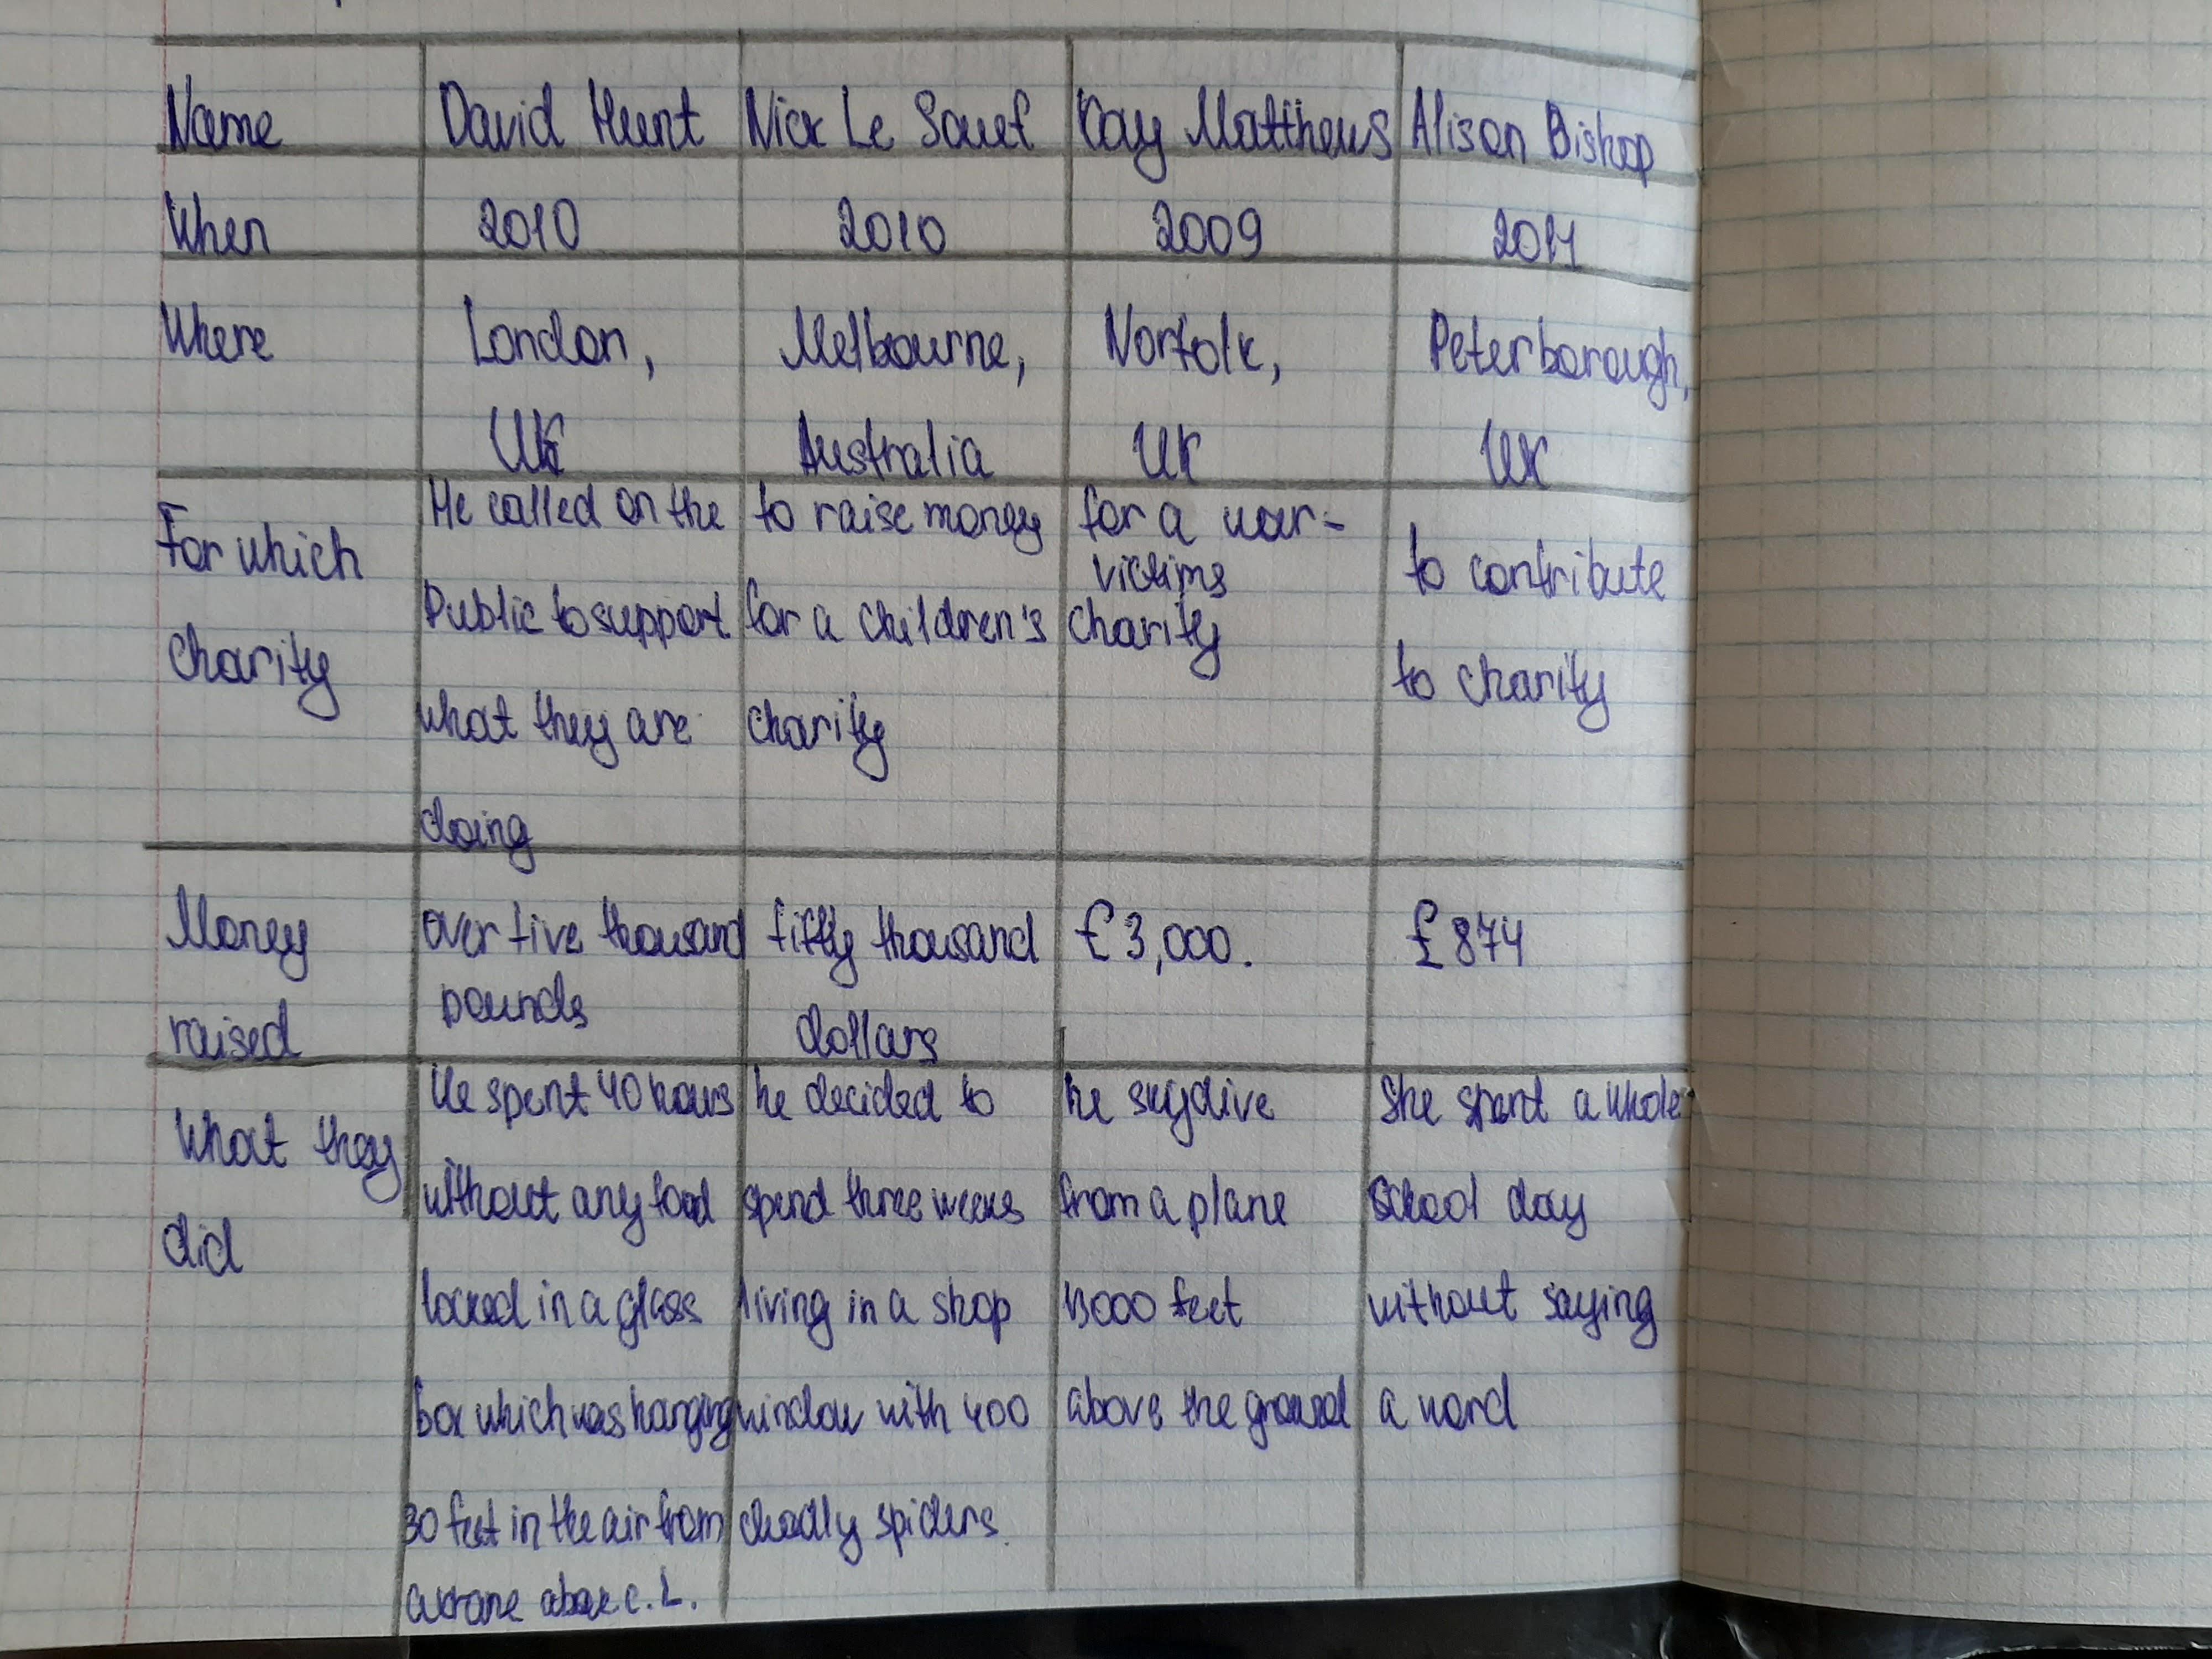 Name David Hunt Nick Le Souef Kay Matthews Alison Bishop
When 2010 2010 2009 2011
Where London, Melbourne, Norfolk, Peterborough,
UK Australia UK UK
For which charity
He called on the
Public to support
what they are
doing
to raise money
for a children's
charity
for a war-
victims
charity
to contribute
to charity
Money raised
over five thousand
pounds
fifty thousand
dollars
£3,000.
£874
What they did
He spent 40 hours
without any food
locked in a glass
box which was hanging
30 feet in the air from
a crane above c. L.
he decided to
spend three weeks
living in a shop
window with 400
deadly spiders.
he skydive
from a plane
13000 feet
above the ground
She spent a whole
school day
without saying
a word